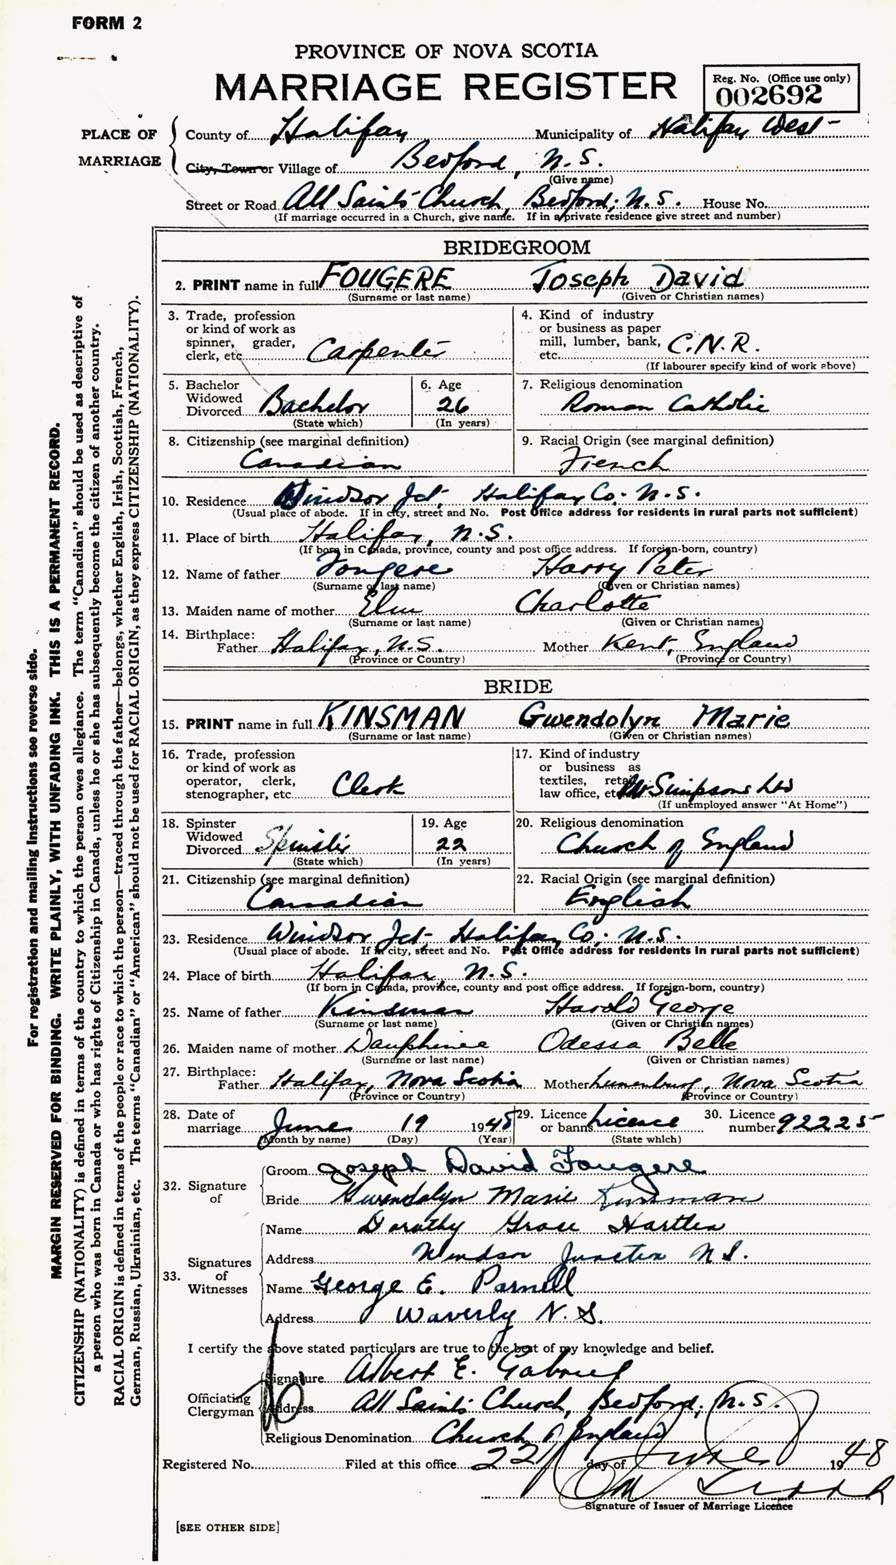 FORM 2
PROVINCE OF NOVA SCOTIA
MARRIAGE REGISTER
Reg. No. (Office use only)
002692
PLACE OF MARRIAGE
County of Halifax Municipality of Halifax West
City, Town or Village of Bedford, N.S.
(Give name)
Street or Road All Saints Church, Bedford, N.S. House No.
(If marriage occurred in a Church, give name. If in a private residence give street and number)
BRIDEGROOM
2. PRINT name in full FOUGERE Joseph David
(Surname or last name) (Given or Christian names)
3. Trade, profession or kind of work as spinner, grader, clerk, etc. Carpenter
4. Kind of industry or business as paper mill, lumber, bank, etc. C.N.R.
(If labourer specify kind of work above)
5. Bachelor Widowed Divorced Bachelor
(State which)
6. Age 26
(In years)
7. Religious denomination
Roman Catholic
8. Citizenship (see marginal definition)
Canadian
9. Racial Origin (see marginal definition)
French
10. Residence Windsor Jct, Halifax Co. N.S.
(Usual place of abode. If in city, street and No. Post Office address for residents in rural parts not sufficient)
11. Place of birth Halifax, N.S.
(If born in Canada, province, county and post office address. If foreign-born, country)
12. Name of father Fougere Harry Peter
(Surname or last name) (Given or Christian names)
13. Maiden name of mother Charlotte
(Surname or last name) (Given or Christian names)
14. Birthplace:
Father Halifax, N.S. Mother Kent, England
(Province or Country) (Province or Country)
BRIDE
15. PRINT name in full KINSMAN Gwendolyn Marie
(Surname or last name) (Given or Christian names)
16. Trade, profession or kind of work as operator, clerk, stenographer, etc. Clerk
17. Kind of industry or business as textiles, retail, law office, etc. Simpsons Ltd
(If unemployed answer "At Home")
18. Spinster Widowed Divorced Spinster
(State which)
19. Age 22
(In years)
20. Religious denomination
Church of England
21. Citizenship (see marginal definition)
Canadian
22. Racial Origin (see marginal definition)
English
23. Residence Windsor Jct Halifax Co. N.S.
(Usual place of abode. If in city, street and No. Post Office address for residents in rural parts not sufficient)
24. Place of birth Halifax N.S.
(If born in Canada, province, county and post office address. If foreign-born, country)
25. Name of father Kinsman Harold George
(Surname or last name) (Given or Christian names)
26. Maiden name of mother Dauphinee Odessa Belle
(Surname or last name) (Given or Christian names)
27. Birthplace:
Father Halifax, Nova Scotia Mother Lunenburg, Nova Scotia
(Province or Country) (Province or Country)
28. Date of marriage June 19 1948
(Month by name) (Day) (Year)
29. Licence or banns Licence
(State which)
30. Licence number 92225
32. Signature of
Groom Joseph David Fougere
Bride Gwendolyn Marie Kinsman
33. Signatures of Witnesses
Name Dorothy Grace
Address Windsor Junction N.S.
Name George E. Parnell
Address Waverly N.S.
I certify the above stated particulars are true to the best of my knowledge and belief.
Officiating Clergyman
Signature Albert E. Gabriel
Address All Saints Church, Bedford, N.S.
Religious Denomination Church of England
Registered No. Filed at this office 22 day of June 1948
Signature of Issuer of Marriage Licence
[SEE OTHER SIDE]
For registration and mailing instructions see reverse side.
MARGIN RESERVED FOR BINDING. WRITE PLAINLY, WITH UNFADING INK. THIS IS A PERMANENT RECORD.
CITIZENSHIP (NATIONALITY) is defined in terms of the country to which the person owes allegiance. The term "Canadian" should be used as descriptive of
a person who was born in Canada or who has rights of Citizenship in Canada, unless he or she has subsequently become the citizen of another country.
RACIAL ORIGIN is defined in terms of the people or race to which the person—traced through the father—belongs, whether English, Irish, Scottish, French,
German, Russian, Ukrainian, etc. The terms "Canadian" or "American" should not be used for RACIAL ORIGIN, as they express CITIZENSHIP (NATIONALITY).